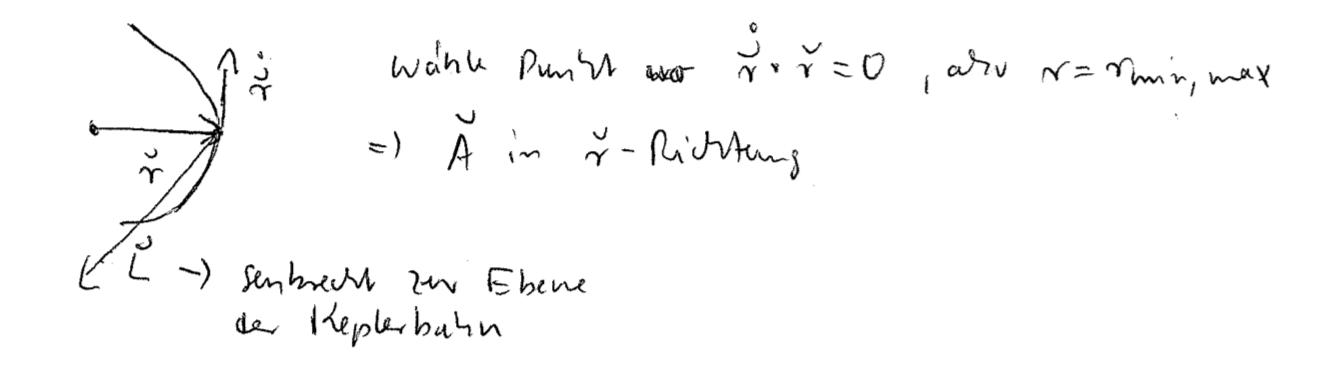 wähle Punkt wo ṙ̆ · r̆ = 0 , also r = rmin, max
ṙ̆
=> Ă in r̆ - Richtung
r̆
L̆ -> senkrecht zur Ebene
der Keplerbahn